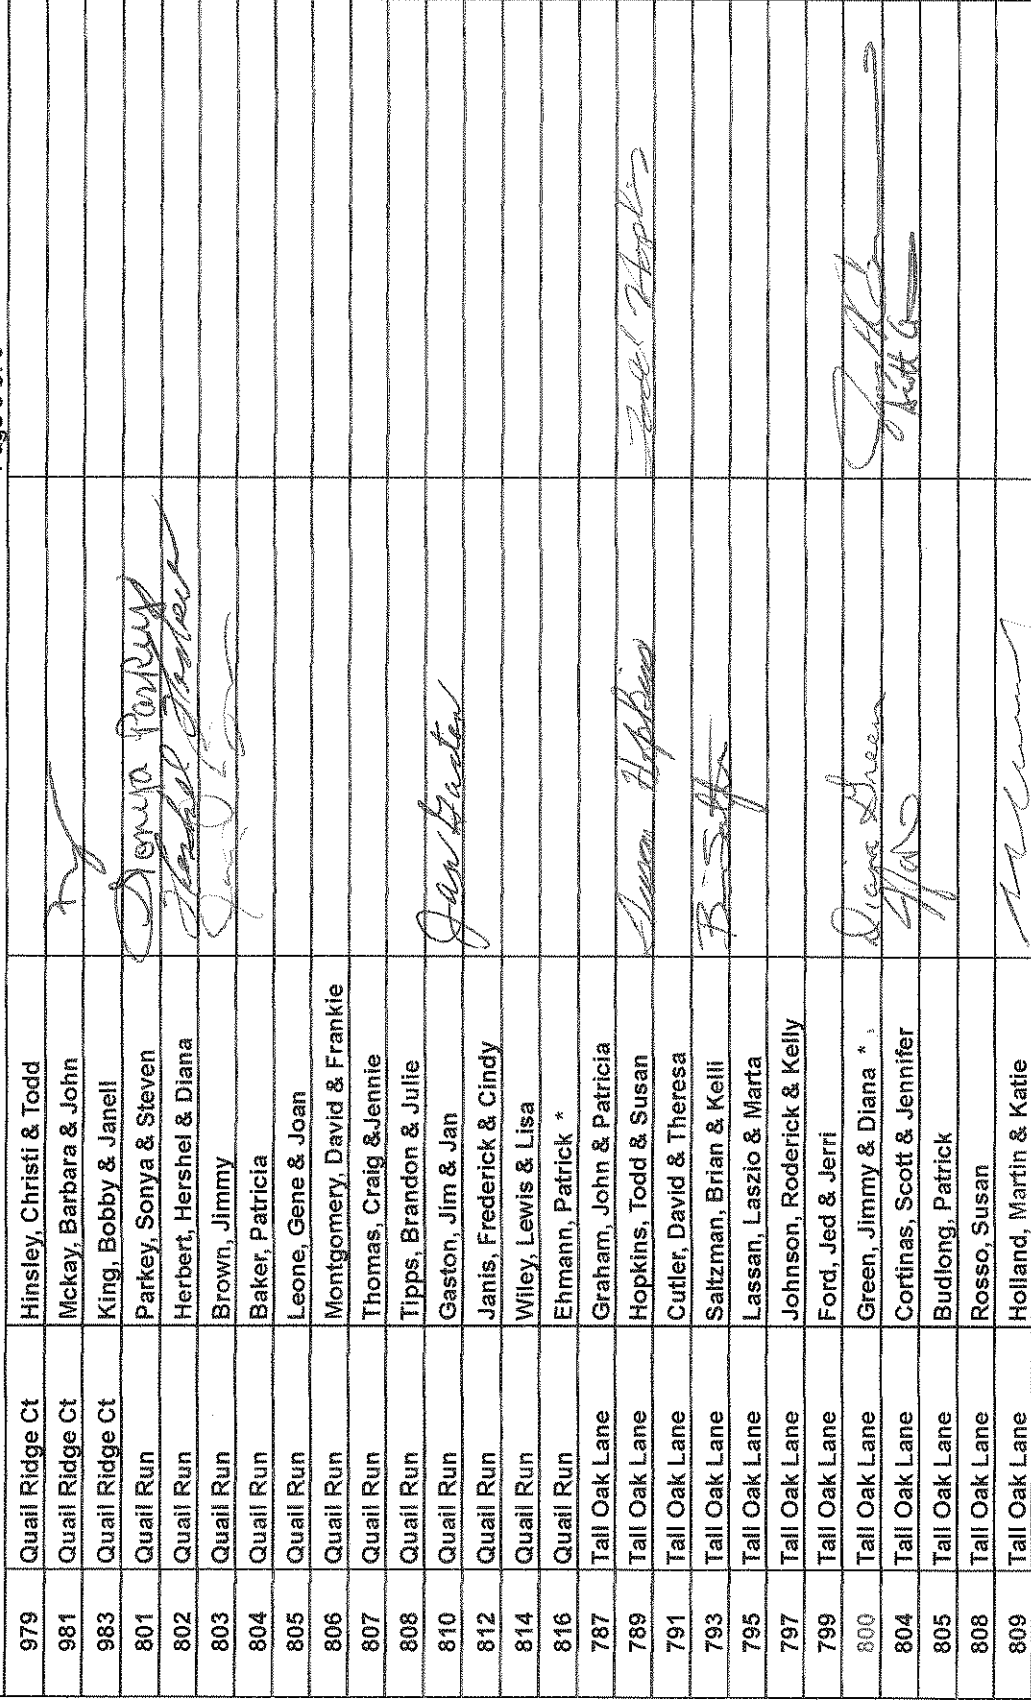 979 Quail Ridge Ct Hinsley, Christi & Todd
981 Quail Ridge Ct Mckay, Barbara & John
983 Quail Ridge Ct King, Bobby & Janell
801 Quail Run Parkey, Sonya & Steven Sonya Parkey
802 Quail Run Herbert, Hershel & Diana Hershel Herbert
803 Quail Run Brown, Jimmy
804 Quail Run Baker, Patricia
805 Quail Run Leone, Gene & Joan
806 Quail Run Montgomery, David & Frankie
807 Quail Run Thomas, Craig &Jennie
808 Quail Run Tipps, Brandon & Julie
810 Quail Run Gaston, Jim & Jan Jan Gaston
812 Quail Run Janis, Frederick & Cindy
814 Quail Run Wiley, Lewis & Lisa
816 Quail Run Ehmann, Patrick *
787 Tall Oak Lane Graham, John & Patricia
789 Tall Oak Lane Hopkins, Todd & Susan Susan Hopkins Todd Hopkins
791 Tall Oak Lane Cutler, David & Theresa
793 Tall Oak Lane Saltzman, Brian & Kelli
795 Tall Oak Lane Lassan, Laszio & Marta
797 Tall Oak Lane Johnson, Roderick & Kelly
799 Tall Oak Lane Ford, Jed & Jerri
800 Tall Oak Lane Green, Jimmy & Diana * Diana Green
804 Tall Oak Lane Cortinas, Scott & Jennifer Scott
805 Tall Oak Lane Budlong, Patrick
808 Tall Oak Lane Rosso, Susan
809 Tall Oak Lane Holland, Martin & Katie